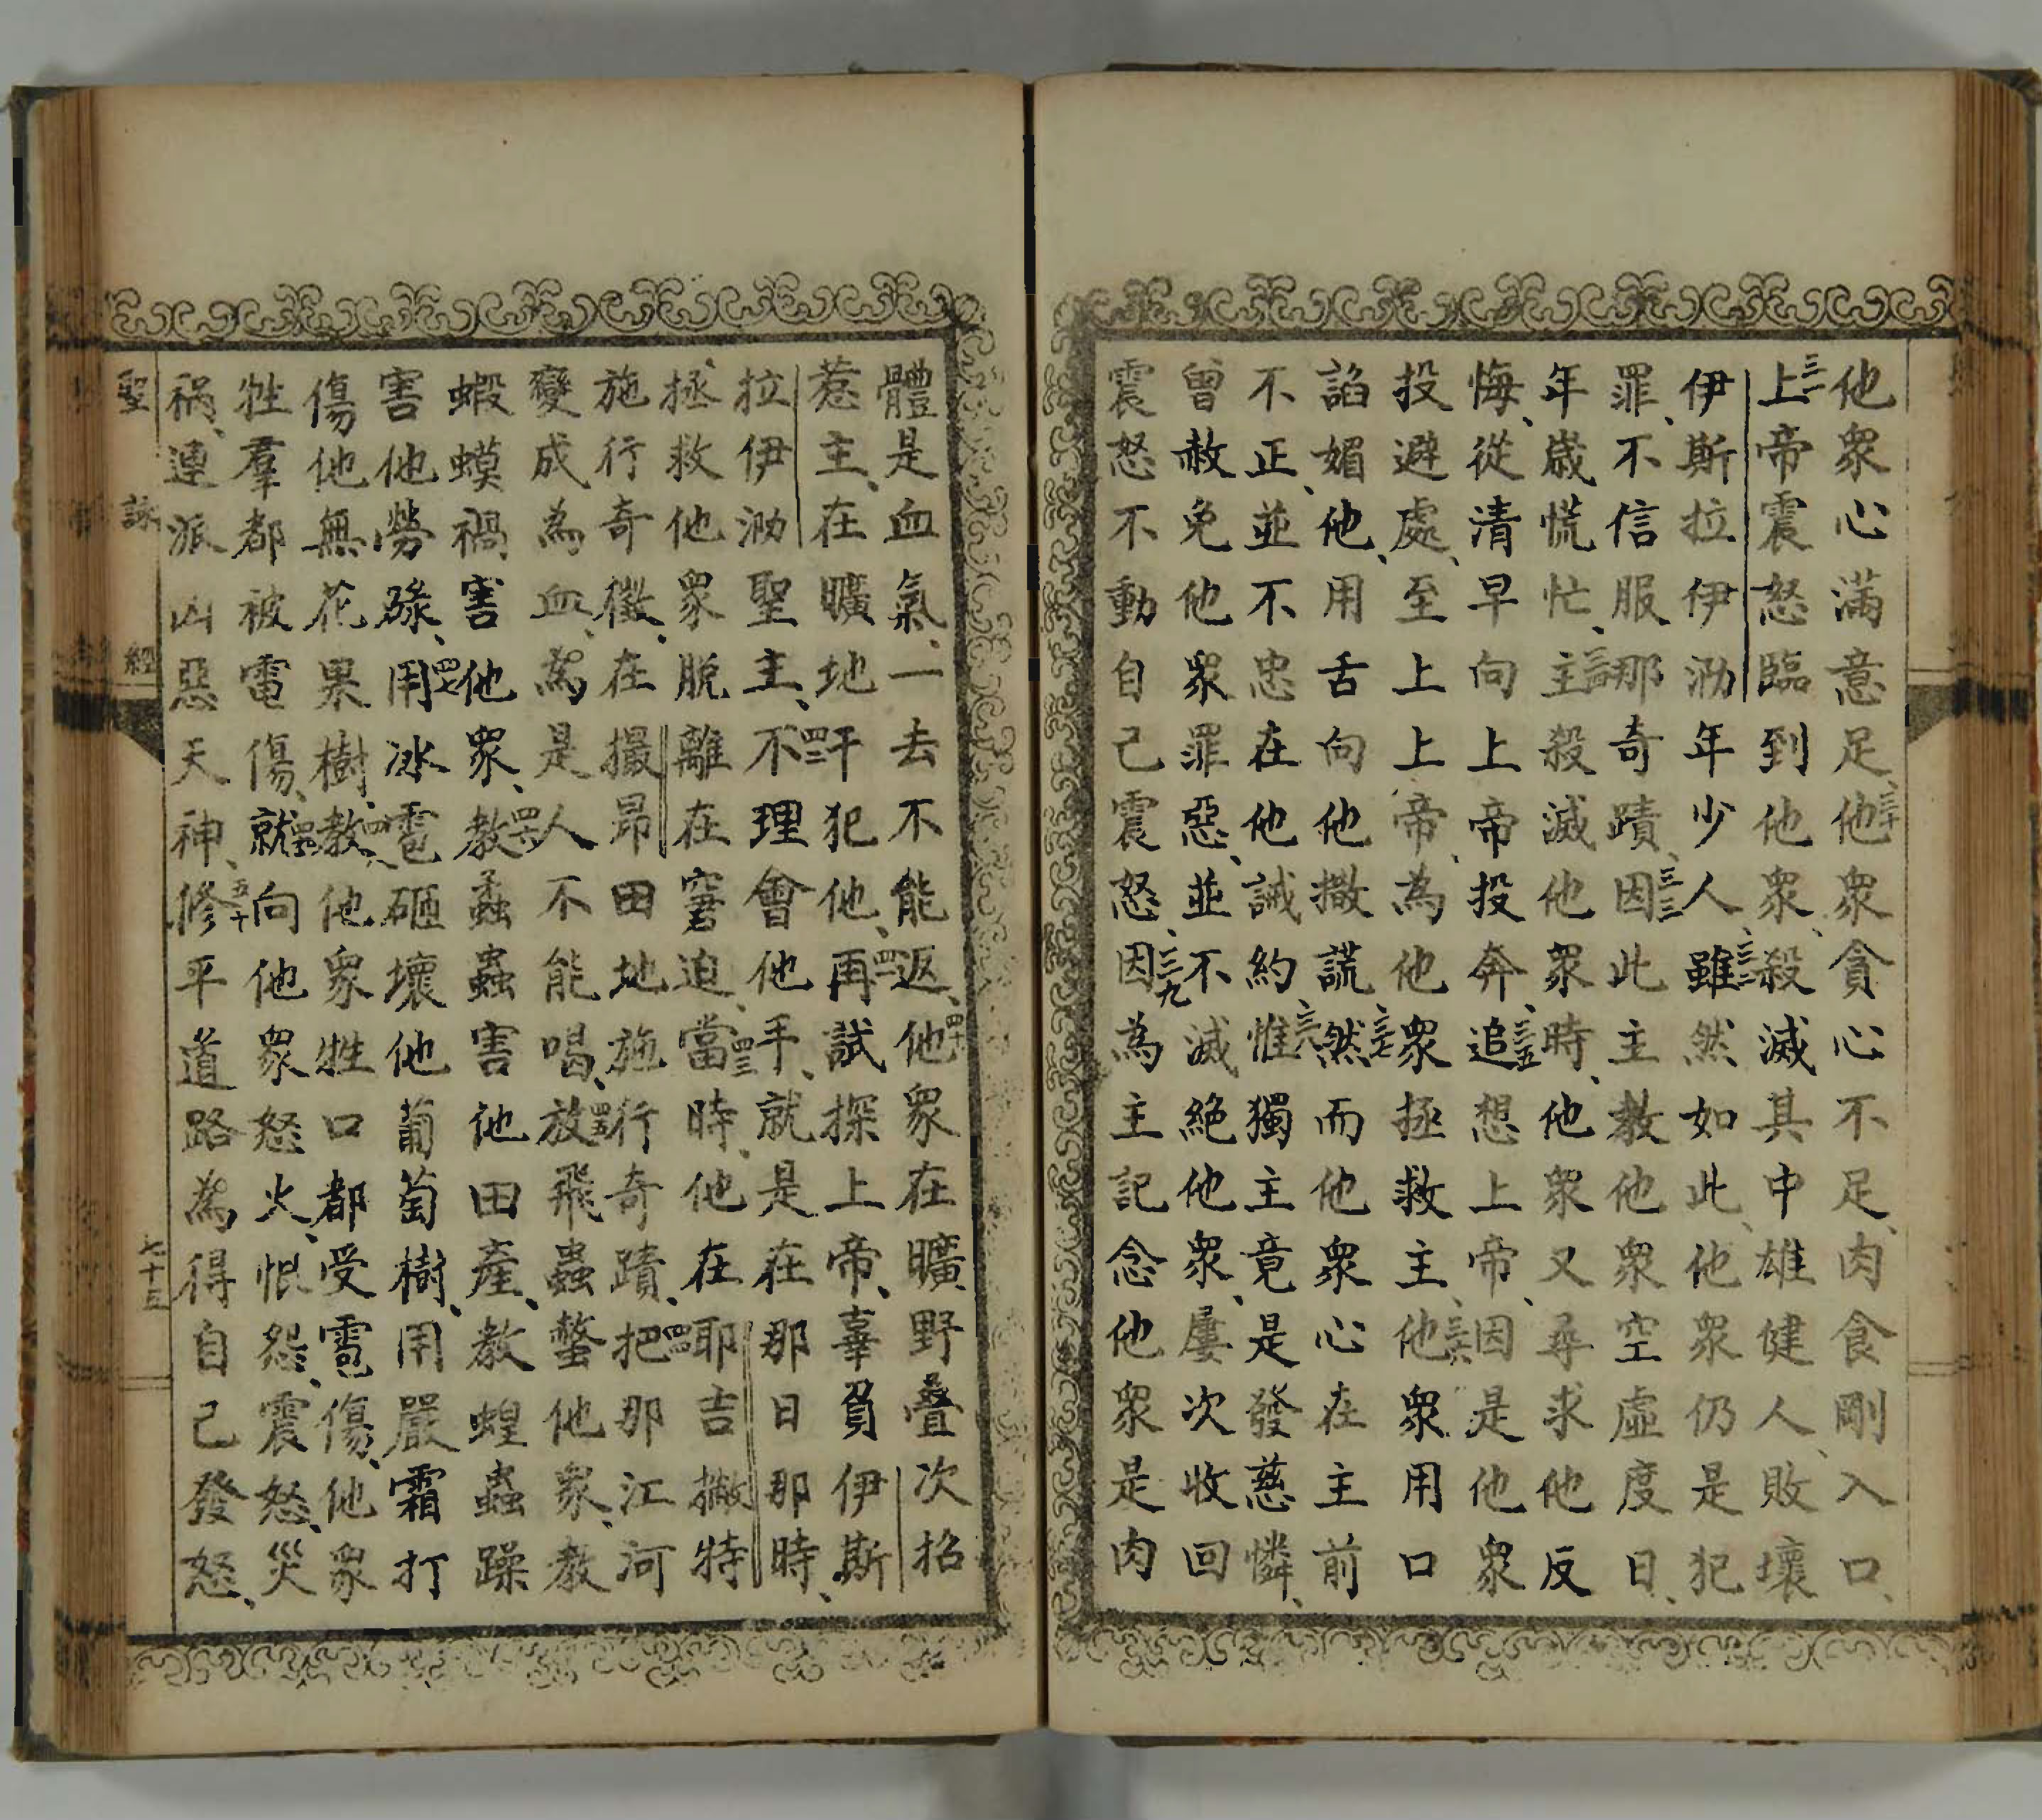 他衆心滿意足、三十他衆貪心不足、肉食剛入口、
三一上帝震怒臨到他衆、殺滅其中雄健人、敗壞
伊斯拉伊泐年少人、三二雖然如此、他衆仍是犯
罪、不信服那奇蹟、三三因此主教他衆空虛度日、
年歲慌忙、三四主殺滅他衆時、他衆又尋求他反
悔、從清早向上帝投奔、三五追想上帝、因是他衆
投避處、至上上帝、為他衆拯救主、三六他衆用口
諂媚他、用舌向他撒謊、三七然而他衆心在主前
不正、並不忠在他誡約、三八惟獨主竟是發慈憐、
曾赦免他衆罪惡、並不滅絕他衆、屢次收回
震怒不動自己震怒、三九因為主記念他衆是肉
體是血氣、一去不能返、四十他衆在曠野疊次招
惹主、在曠地干犯他、四一再試探上帝、辜負伊斯
拉伊泐聖主、四二不理會他手、就是在那日那時、
拯救他衆脫離在窘迫、四三當時、他在耶吉撇特
施行奇徵、在撮昻田地施行奇蹟、四四把那江河
變成為血、為是人不能喝、四五放飛蟲螫他衆、教
蝦蟆禍害他衆、四六教蟊蟲害他田產、教蝗蟲躁
害他勞碌、四七用冰雹砸壞他葡萄樹、用嚴霜打
傷他無花果樹、四八教他衆牲口都受雹傷、他衆
牲羣都被電傷、四九就向他衆怒火、恨怨、震怒、災
禍、連派凶惡天神、五十修平道路為得自己發怒、
聖詠經 七十三